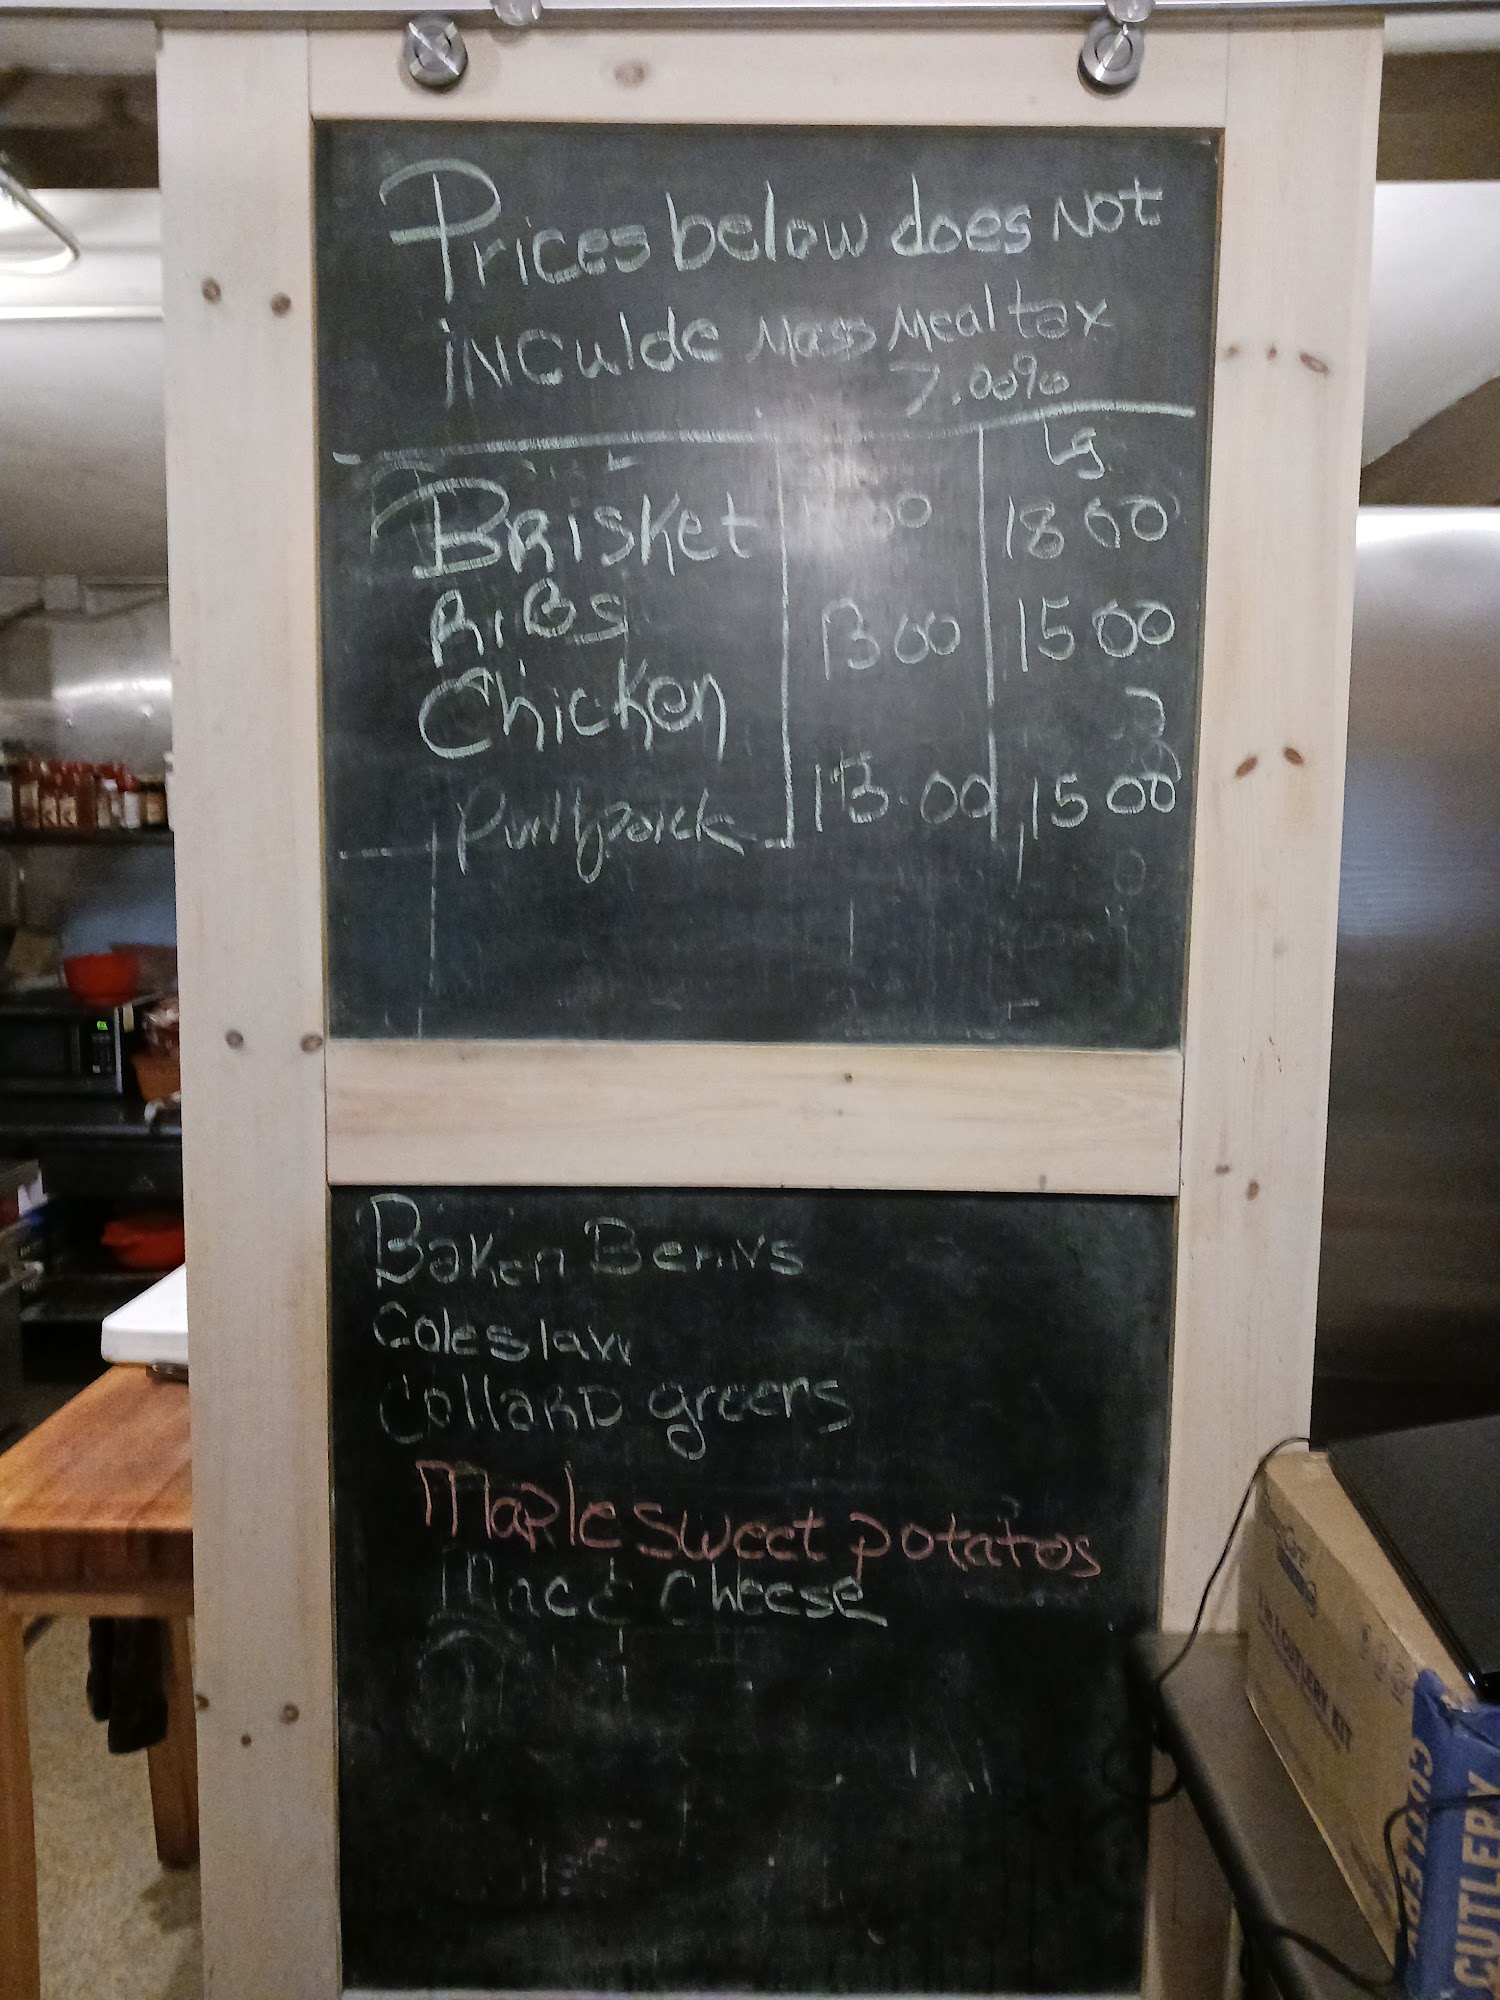 Prices below does Not
iNCulde Mass Meal tax
7.00%
Lg
BRisket 18 00
RiBs 13 00 15 00
Chicken
Pullpork 13.00 15 00
Baken Beans
Coleslaw
CollarD greens
Maple sweet potatos
Mac & Cheese
CUTLERY KIT
CUTLERY
CUTLERY